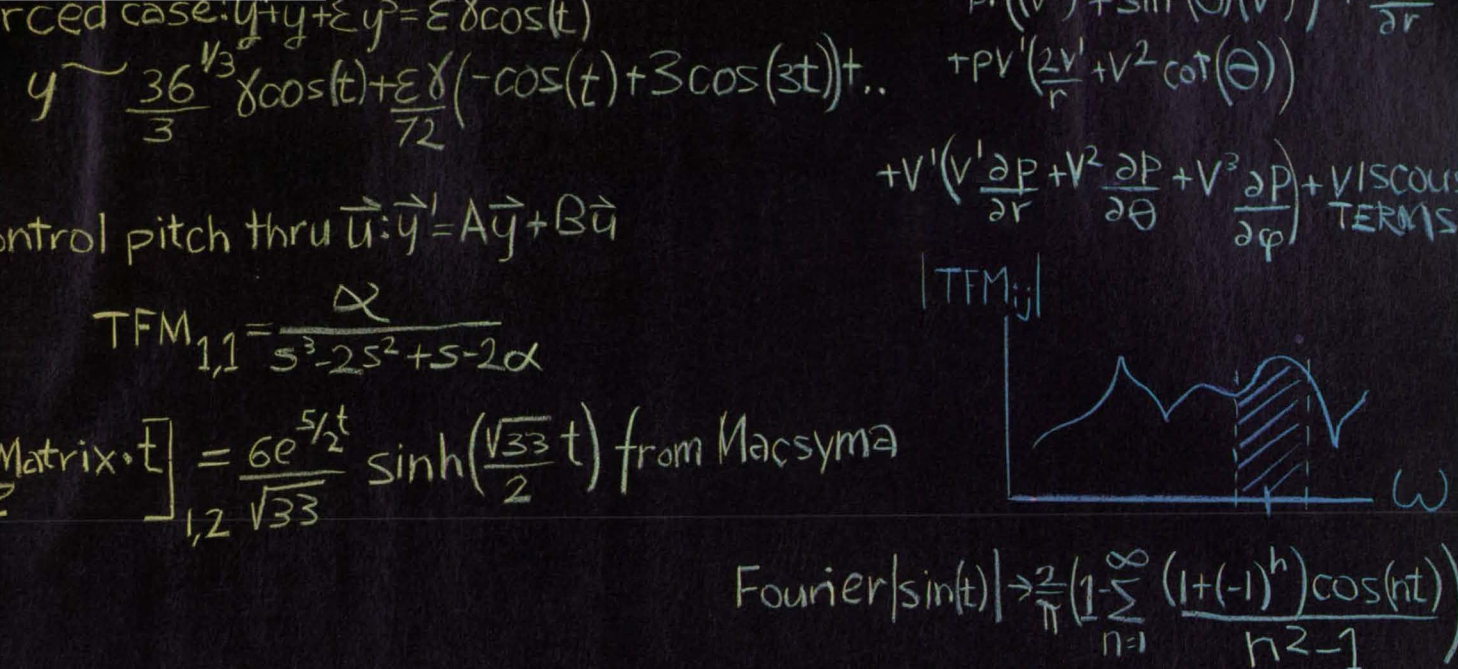 rced case: y+y+εy³=εγcos(t)
y ~ 36^1/3/3 γcos(t)+εγ/72(-cos(t)+3cos(3t))+..
ontrol pitch thru u⃗: y⃗'=Ay⃗+Bu⃗
TFM1,1 = α/(s³-2s²+s-2α)
Matrix·t]1,2 = 6e^(5/2 t)/√33 sinh(√33/2 t) from Macsyma
+pv'(2v'/r +v² cot(θ))
+v'(v'∂p/∂r +v²∂p/∂θ +v³∂p/∂φ)+VISCOUS
TERMS
|TFMij|
ω
Fourier|sin(t)|→2/π(1-∑n=1^∞ (1+(-1)^n)cos(nt)/(n²-1))